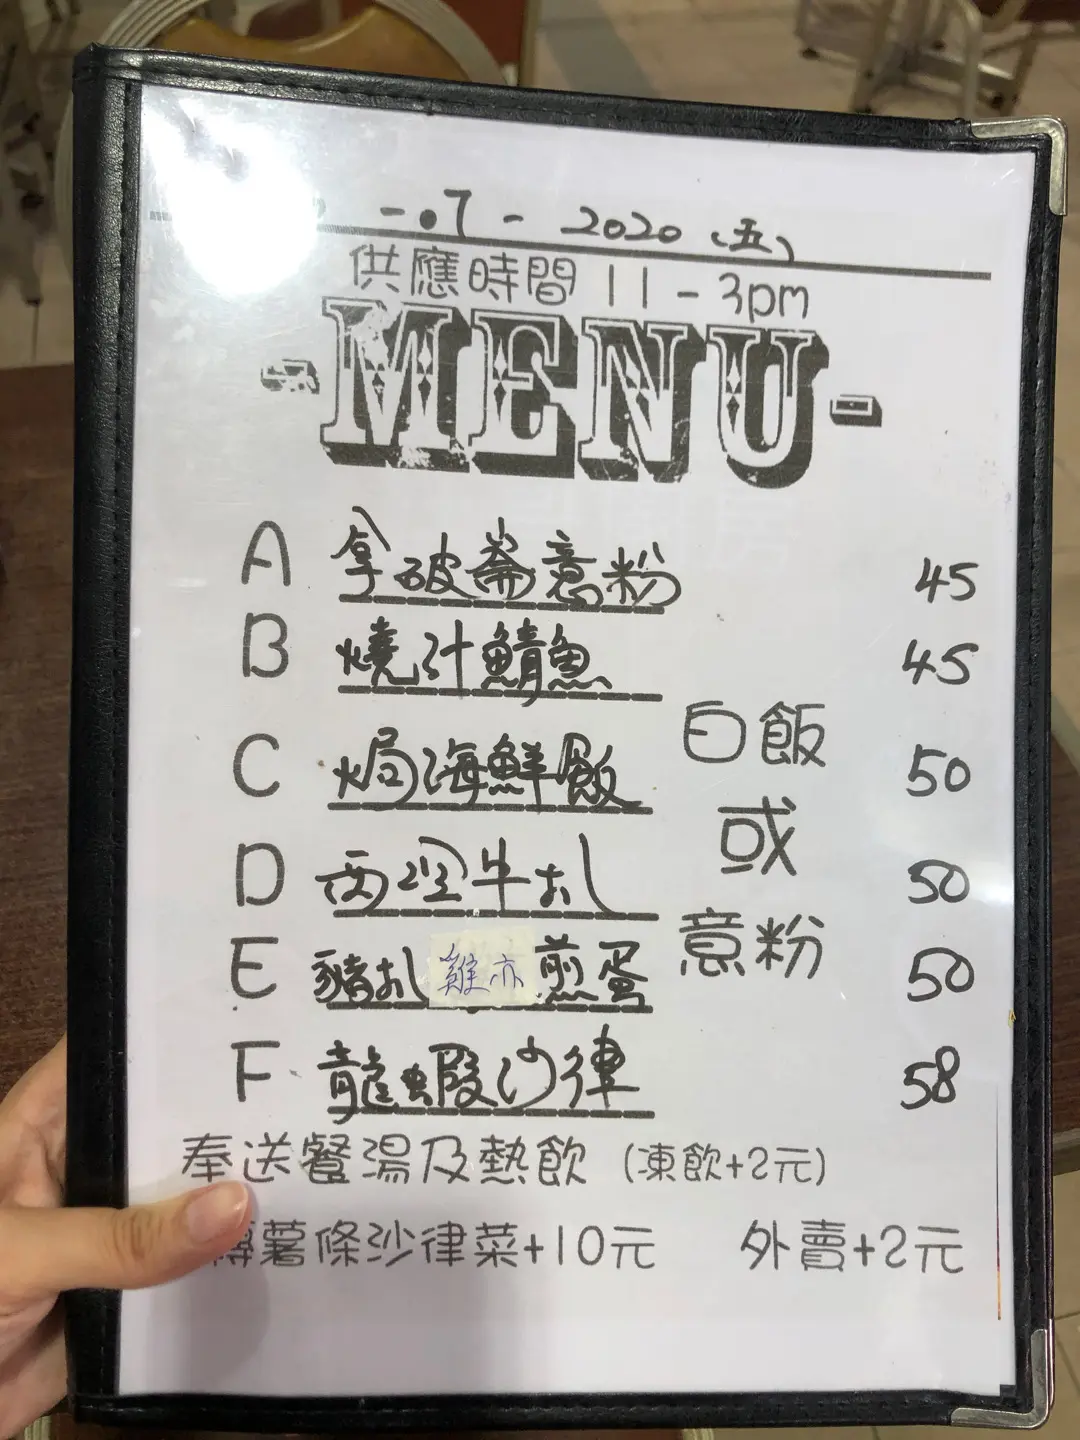 -07-2020 (五)
供應時間 11-3pm
-MENU-
A 拿破崙意粉 45
B 燒汁鯖魚 45
白飯
C 焗海鮮飯 50
或
D 西冷牛扒 50
意粉
E 豬扒 雞亦 煎蛋 50
F 龍蝦沙律 58
奉送餐湯及熱飲 (凍飲+2元)
薯條沙律菜+10元 外賣+2元